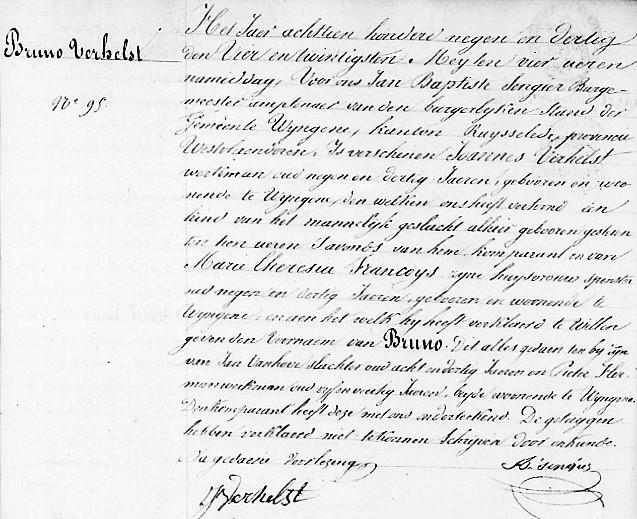 Bruno Verhelst
No 95
Het Jaer achttien honderd negen en dertig
den Vier en twintigsten Mey ten vier ueren
namiddag, Voor ons Jan Baptiste Burge-
meester amptenaer van den burgerlyken stand der
Gemeente Wyngene, kanton Ruysselede, provincie
Westvlaenderen, Is verschenen Joannes Verhelst
werkman oud negen en dertig Jaeren, gebooren en woo-
nende te Wyngene, den welken ons heeft vertoond een
kind van het mannelyk geslacht alhier gebooren gisteren
ten tien ueren s'avonds van hem komparant en van
Marie Theresia Francoys zyne huysvrouw spinster
oud negen en dertig Jaeren, gebooren en woonende te
Wyngene, en aen het welk hy heeft verklaerd te willen
geven den voornaem van Bruno. Dit alles gedaen ten by zyn
van Jan Vanhove slachter oud acht en dertig Jaeren en Pieter Her-
man werkman oud vyf en veertig Jaeren, beyde woonende te Wyngene.
Den komparant heeft deze met ons onderteekend. De getuygen
hebben verklaerd niet te konnen schryven door onkunde.
Na gedaene voorlezing
J Verhelst